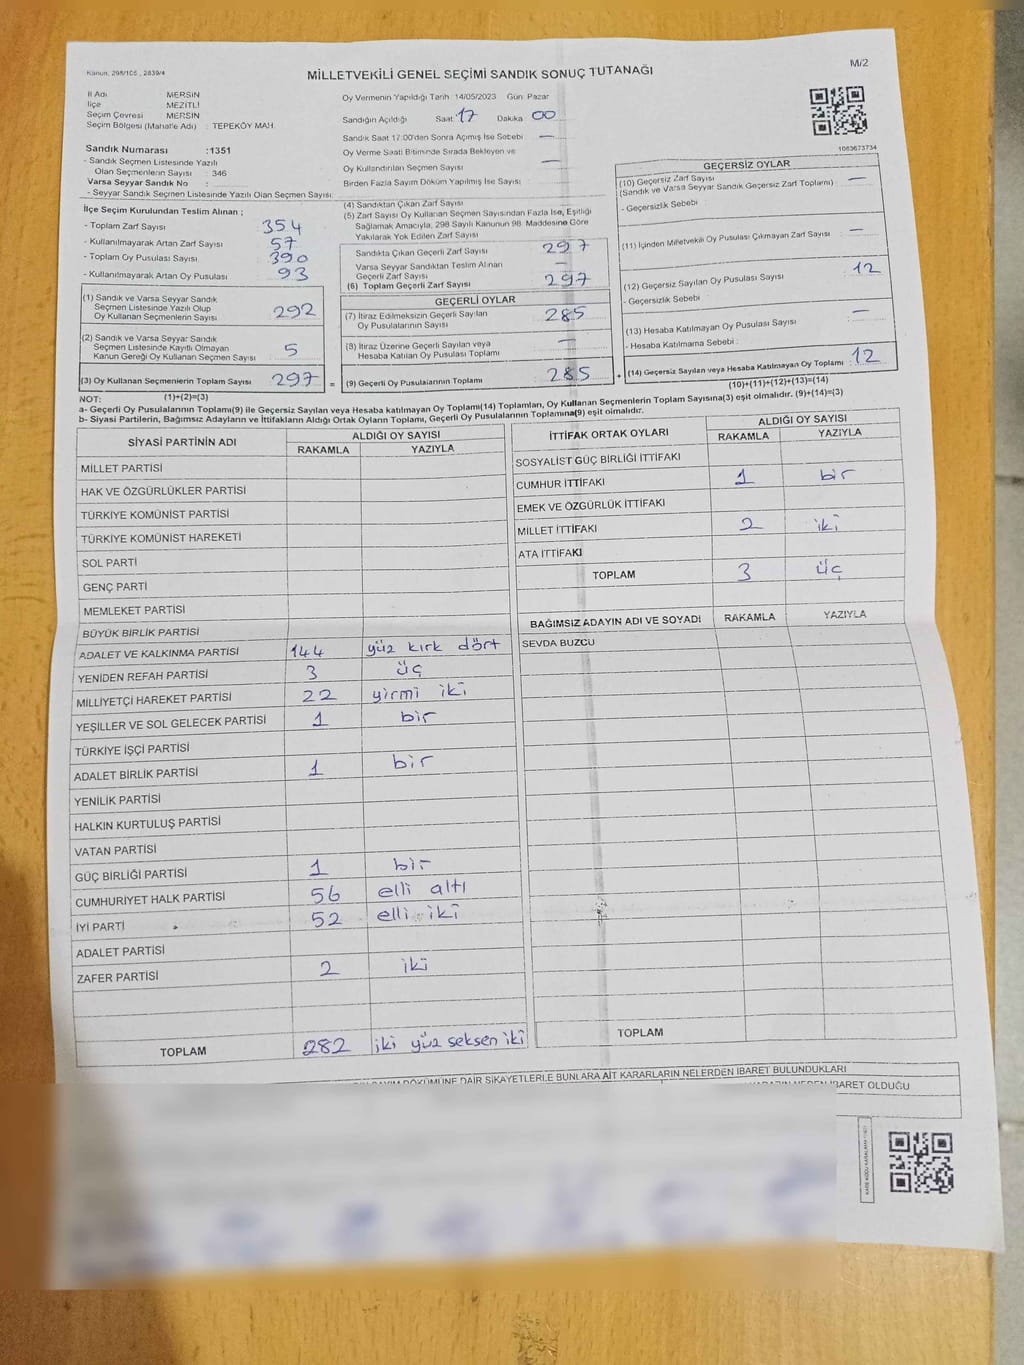 Kanun, 298/105 , 2839/4
MİLLETVEKİLİ GENEL SEÇİMİ SANDIK SONUÇ TUTANAĞI
M/2
İl Adı MERSİN
İlçe MEZİTLİ
Seçim Çevresi MERSİN
Seçim Bölgesi (Mahalle Adı) : TEPEKÖY MAH.
Sandık Numarası :1351
- Sandık Seçmen Listesinde Yazılı
Olan Seçmenlerin Sayısı : 346
Varsa Seyyar Sandık No :
- Seyyar Sandık Seçmen Listesinde Yazılı Olan Seçmen Sayısı:
Oy Vermenin Yapıldığı Tarih 14/05/2023 Gün Pazar
Sandığın Açıldığı Saat 17 Dakika 00
Sandık Saat 17:00'den Sonra Açılmış İse Sebebi —
Oy Verme Saati Bitiminde Sırada Bekleyen ve
Oy Kullandırılan Seçmen Sayısı —
Birden Fazla Sayım Döküm Yapılmış İse Sayısı
1063673734
İlçe Seçim Kurulundan Teslim Alınan ;
- Toplam Zarf Sayısı 354
- Kullanılmayarak Artan Zarf Sayısı 57
- Toplam Oy Pusulası Sayısı 390
- Kullanılmayarak Artan Oy Pusulası 93
(1) Sandık ve Varsa Seyyar Sandık
Seçmen Listesinde Yazılı Olup
Oy Kullanan Seçmenlerin Sayısı 292
(2) Sandık ve Varsa Seyyar Sandık
Seçmen Listesinde Kayıtlı Olmayan
Kanun Gereği Oy Kullanan Seçmen Sayısı 5
(3) Oy Kullanan Seçmenlerin Toplam Sayısı 297 =
(1)+(2)=(3)
(4) Sandıktan Çıkan Zarf Sayısı
(5) Zarf Sayısı Oy Kullanan Seçmen Sayısından Fazla İse, Eşitliği
Sağlamak Amacıyla, 298 Sayılı Kanunun 98. Maddesine Göre
Yakılarak Yok Edilen Zarf Sayısı
Sandıkta Çıkan Geçerli Zarf Sayısı 297
Varsa Seyyar Sandıktan Teslim Alınan
Geçerli Zarf Sayısı —
(6) Toplam Geçerli Zarf Sayısı 297
GEÇERLİ OYLAR
(7) İtiraz Edilmeksizin Geçerli Sayılan
Oy Pusulalarının Sayısı 285
(8) İtiraz Üzerine Geçerli Sayılan veya
Hesaba Katılan Oy Pusulası Toplamı —
(9) Geçerli Oy Pusulalarının Toplamı 285 +
GEÇERSİZ OYLAR
(10) Geçersiz Zarf Sayısı
(Sandık ve Varsa Seyyar Sandık Geçersiz Zarf Toplamı) —
- Geçersizlik Sebebi
(11) İçinden Milletvekili Oy Pusulası Çıkmayan Zarf Sayısı —
(12) Geçersiz Sayılan Oy Pusulası Sayısı 12
- Geçersizlik Sebebi
(13) Hesaba Katılmayan Oy Pusulası Sayısı —
- Hesaba Katılmama Sebebi :
(14) Geçersiz Sayılan veya Hesaba Katılmayan Oy Toplamı 12
(10)+(11)+(12)+(13)=(14)
NOT:
a- Geçerli Oy Pusulalarının Toplamı(9) ile Geçersiz Sayılan veya Hesaba katılmayan Oy Toplamı(14) Toplamları, Oy Kullanan Seçmenlerin Toplam Sayısına(3) eşit olmalıdır. (9)+(14)=(3)
b- Siyasi Partilerin, Bağımsız Adayların ve İttifakların Aldığı Ortak Oyların Toplamı, Geçerli Oy Pusulalarının Toplamına(9) eşit olmalıdır.
SİYASİ PARTİNİN ADI ALDIĞI OY SAYISI
RAKAMLA YAZIYLA
MİLLET PARTİSİ
HAK VE ÖZGÜRLÜKLER PARTİSİ
TÜRKİYE KOMÜNİST PARTİSİ
TÜRKİYE KOMÜNİST HAREKETİ
SOL PARTİ
GENÇ PARTİ
MEMLEKET PARTİSİ
BÜYÜK BİRLİK PARTİSİ
ADALET VE KALKINMA PARTİSİ 144 yüz kırk dört
YENİDEN REFAH PARTİSİ 3 üç
MİLLİYETÇİ HAREKET PARTİSİ 22 yirmi iki
YEŞİLLER VE SOL GELECEK PARTİSİ 1 bir
TÜRKİYE İŞÇİ PARTİSİ
ADALET BİRLİK PARTİSİ 1 bir
YENİLİK PARTİSİ
HALKIN KURTULUŞ PARTİSİ
VATAN PARTİSİ
GÜÇ BİRLİĞİ PARTİSİ 1 bir
CUMHURİYET HALK PARTİSİ 56 elli altı
İYİ PARTİ 52 elli iki
ADALET PARTİSİ
ZAFER PARTİSİ 2 iki
TOPLAM 282 iki yüz seksen iki
İTTİFAK ORTAK OYLARI ALDIĞI OY SAYISI
RAKAMLA YAZIYLA
SOSYALİST GÜÇ BİRLİĞİ İTTİFAKI
CUMHUR İTTİFAKI 1 bir
EMEK VE ÖZGÜRLÜK İTTİFAKI
MİLLET İTTİFAKI 2 iki
ATA İTTİFAKI
TOPLAM 3 üç
BAĞIMSIZ ADAYIN ADI VE SOYADI RAKAMLA YAZIYLA
SEVDA BUZCU
TOPLAM
DÖKÜMÜNE DAİR ŞİKAYETLERLE BUNLARA AİT KARARLARIN NELERDEN İBARET BULUNDUKLARI
İBARET OLDUĞU